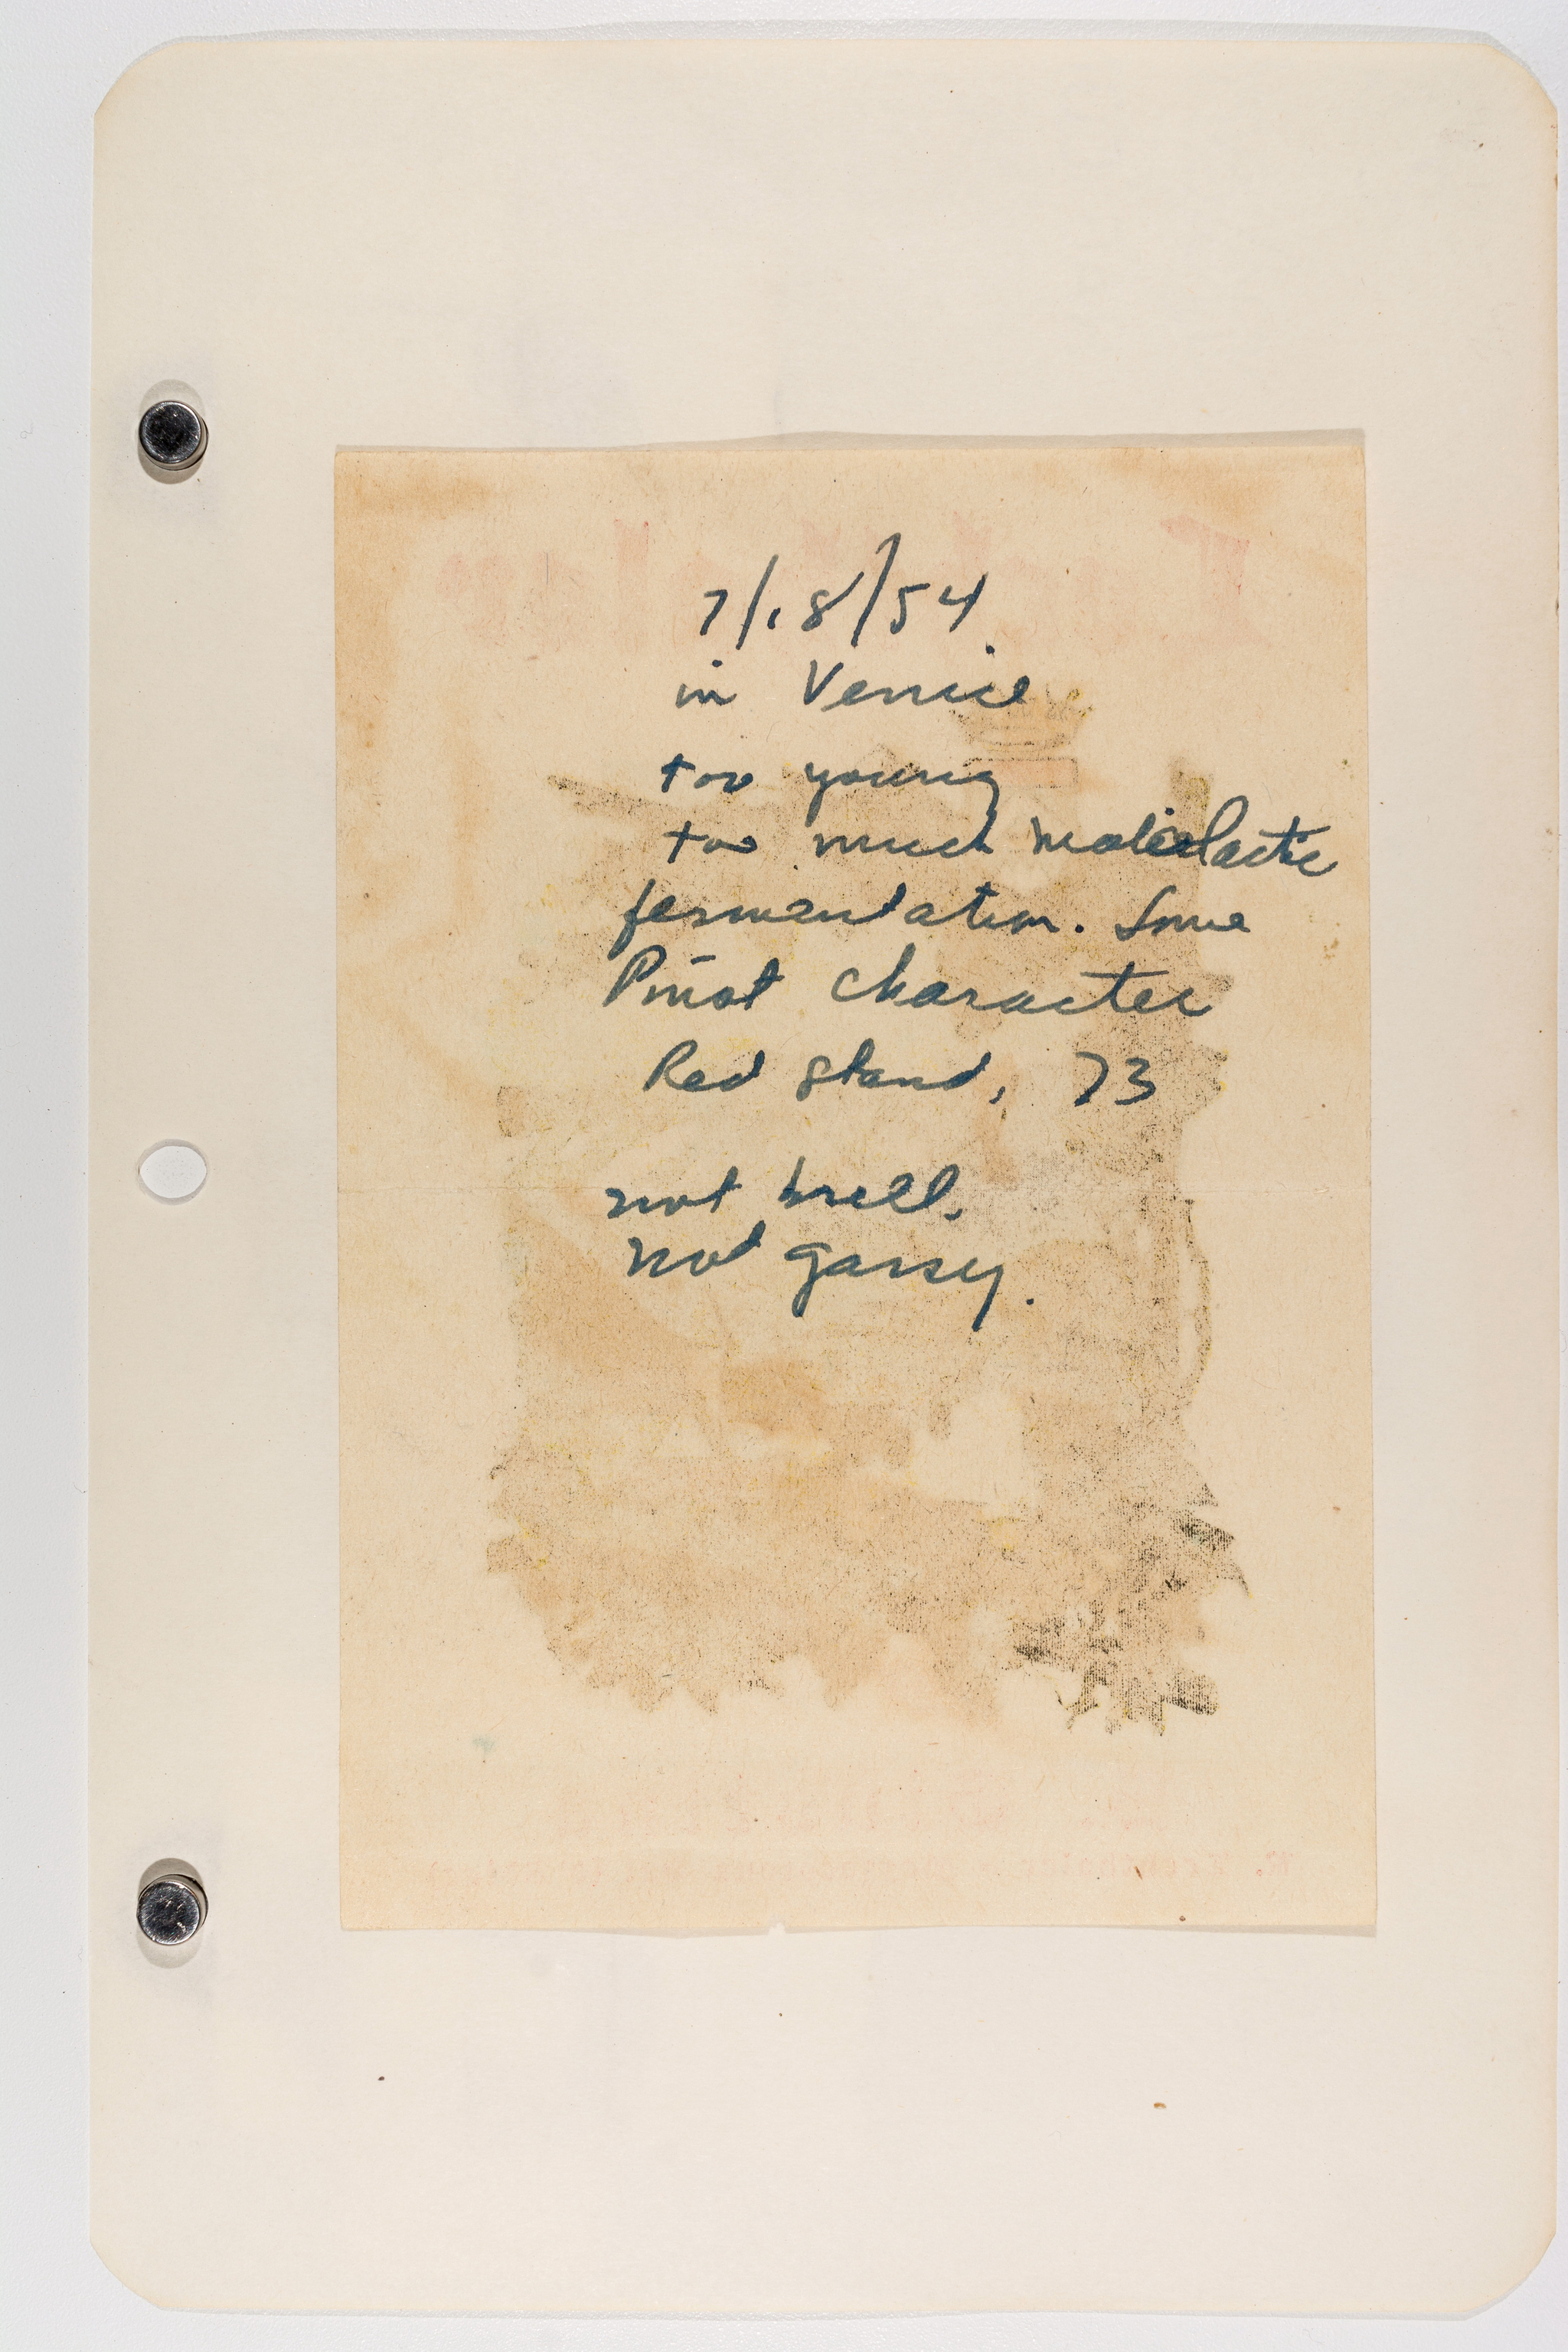 7/18/54
in Venice
too young
too much malolactic
fermentation. Some
Pinot character
Red stand, 73
not brill.
not gassy.